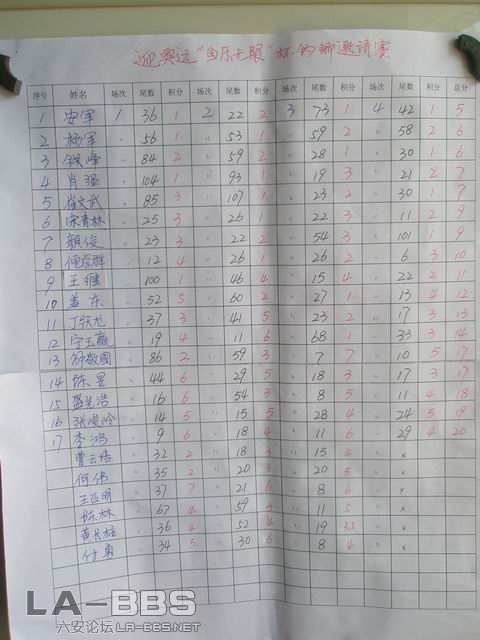 迎奥运“鱼乐无限”杯钓鲫邀请赛
序号 姓名 场次 尾数 积分 场次 尾数 积分 场次 尾数 积分 场次 尾数 积分 总分
1 安军 1 36 1 2 22 2 3 73 1 4 42 1 5
2 杨军 〃 56 1 〃 53 1 〃 59 2 〃 58 2 6
3 钱峰 〃 84 2 〃 59 2 〃 28 1 〃 30 1 6
4 肖强 〃 104 1 〃 93 1 〃 19 3 〃 21 2 7
5 崔文武 〃 85 3 〃 107 1 〃 23 2 〃 30 1 7
6 宋青林 〃 25 3 〃 26 1 〃 22 3 〃 11 2 9
7 颜俊 〃 23 3 〃 22 2 〃 54 3 〃 101 1 9
8 〃 12 4 〃 26 1 〃 26 2 〃 6 3 10
9 王继 〃 100 1 〃 46 4 〃 15 4 〃 22 2 11
10 姜东 〃 52 5 〃 60 2 〃 27 1 〃 13 4 12
11 丁跃龙 〃 37 3 〃 41 5 〃 23 2 〃 17 3 13
12 宁玉赢 〃 19 4 〃 11 6 〃 68 1 〃 33 3 14
13 敬国 〃 86 2 〃 59 3 〃 7 7 〃 10 5 17
14 陈昱 〃 44 6 〃 29 5 〃 18 3 〃 17 3 17
15 盛先浩 〃 16 6 〃 54 3 〃 8 5 〃 11 4 18
16 张峻岭 〃 14 5 〃 15 5 〃 28 4 〃 24 5 19
17 李鸿 〃 9 6 〃 18 4 〃 11 6 〃 29 4 20
曹云信 〃 32 2 〃 18 3 〃 15 4 〃 x
何伟 〃 35 2 〃 20 3 〃 20 5 〃 x
王亚明 〃 37 7 〃 21 6 〃 8 6 〃 x
陈林 〃 67 4 〃 59 3 〃 11 5 〃 x
黄长柱 〃 36 4 〃 52 4 〃 19 3.5 〃 x
付勇 〃 34 5 〃 30 6 〃 8 4 〃 x
LA-BBS
六安论坛LA-BBS.NET